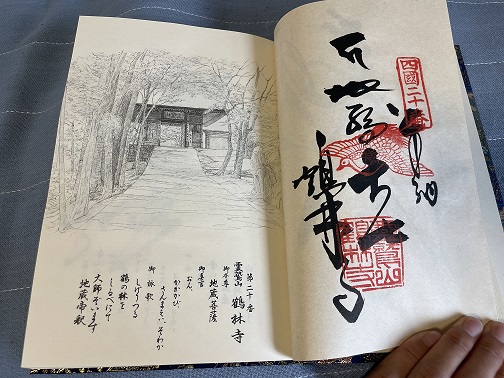 四國二十番
奉納
鶴林寺
第二十番
靈鷲山 鶴林寺
御本尊 地蔵菩薩
御真言
おん、
かかかび、
さんまえい、そわか
御詠歌
しげりつる
鶴の林を
しるべにて
大師ぞいます
地蔵帝釈